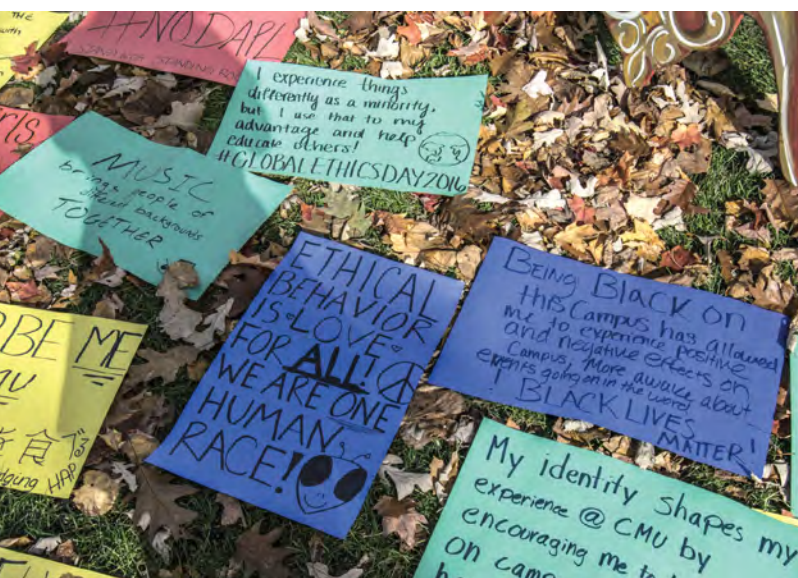 THE
with
#NO DAPL
STAND WITH STANDING RO
I experience things
differently as a minority,
but I use that to my
advantage and help
educate others!
#GLOBALETHICSDAY2016
rls
MUSIC
brings people of
different backgrounds
TOGETHER
BE ME
ETHICAL
BEHAVIOR
IS LOVE
FOR ALL!
WE ARE ONE
HUMAN
RACE!
BEING BLACK ON
this Campus has allowed
me to experience positive
and negative effects on
Campus. More awake about
events going on in the world
! BLACK LIVES
MATTER!
食べる
HAP
My identity shapes my
experience @ CMU by
encouraging me to
on camp